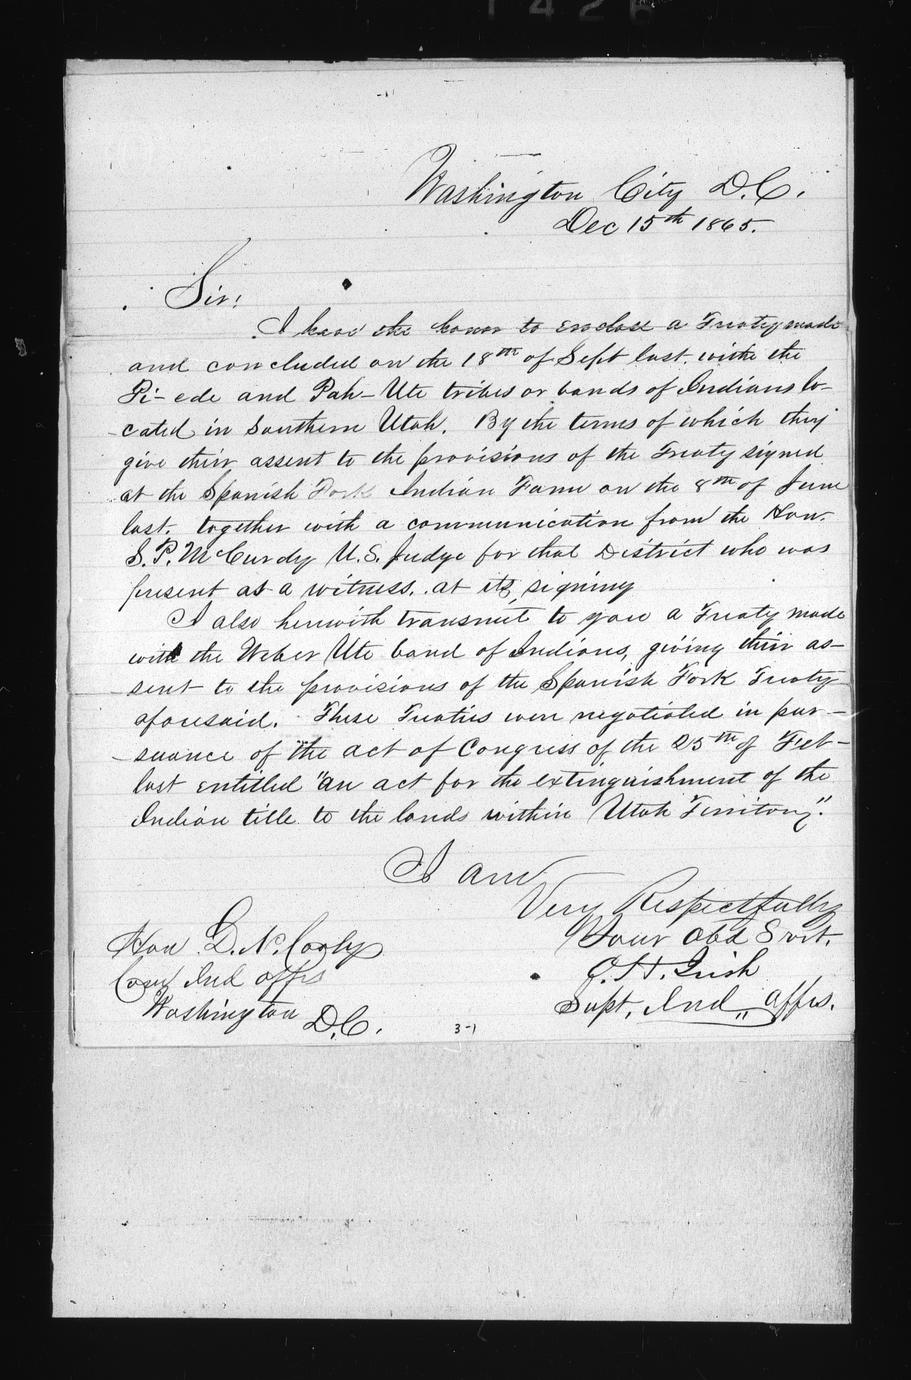 1426
Washington City D.C.
Dec 15th 1865.
Sir!
I have the honor to enclose a Treaty made
and concluded on the 18th of Sept last with the
Pi-ede and Pah-Ute tribes or bands of Indians lo-
cated in Southern Utah. By the terms of which they
give their assent to the provisions of the Treaty signed
at the Spanish Fork Indian Farm on the 8th of June
last. together with a communication from the Hon.
S. P. McCurdy U.S. Judge for that District who was
present as a witness. at its signing
I also herewith transmit to you a Treaty made
with the Weber Ute band of Indians, giving their as-
sent to the provisions of the Spanish Fork Treaty
aforesaid. These Treaties were negotiated in pur-
suance of the act of Congress of the 25th of Feb-
last entitled "an act for the extinguishment of the
Indian title to the lands within Utah Territory".
I am
Very Respectfully
Your Obd Svt.
O. H. Irish
Supt, Ind,, Affrs.
Hon D. N. Cooly
Com Ind Affrs
Washington
D.C.
3-1